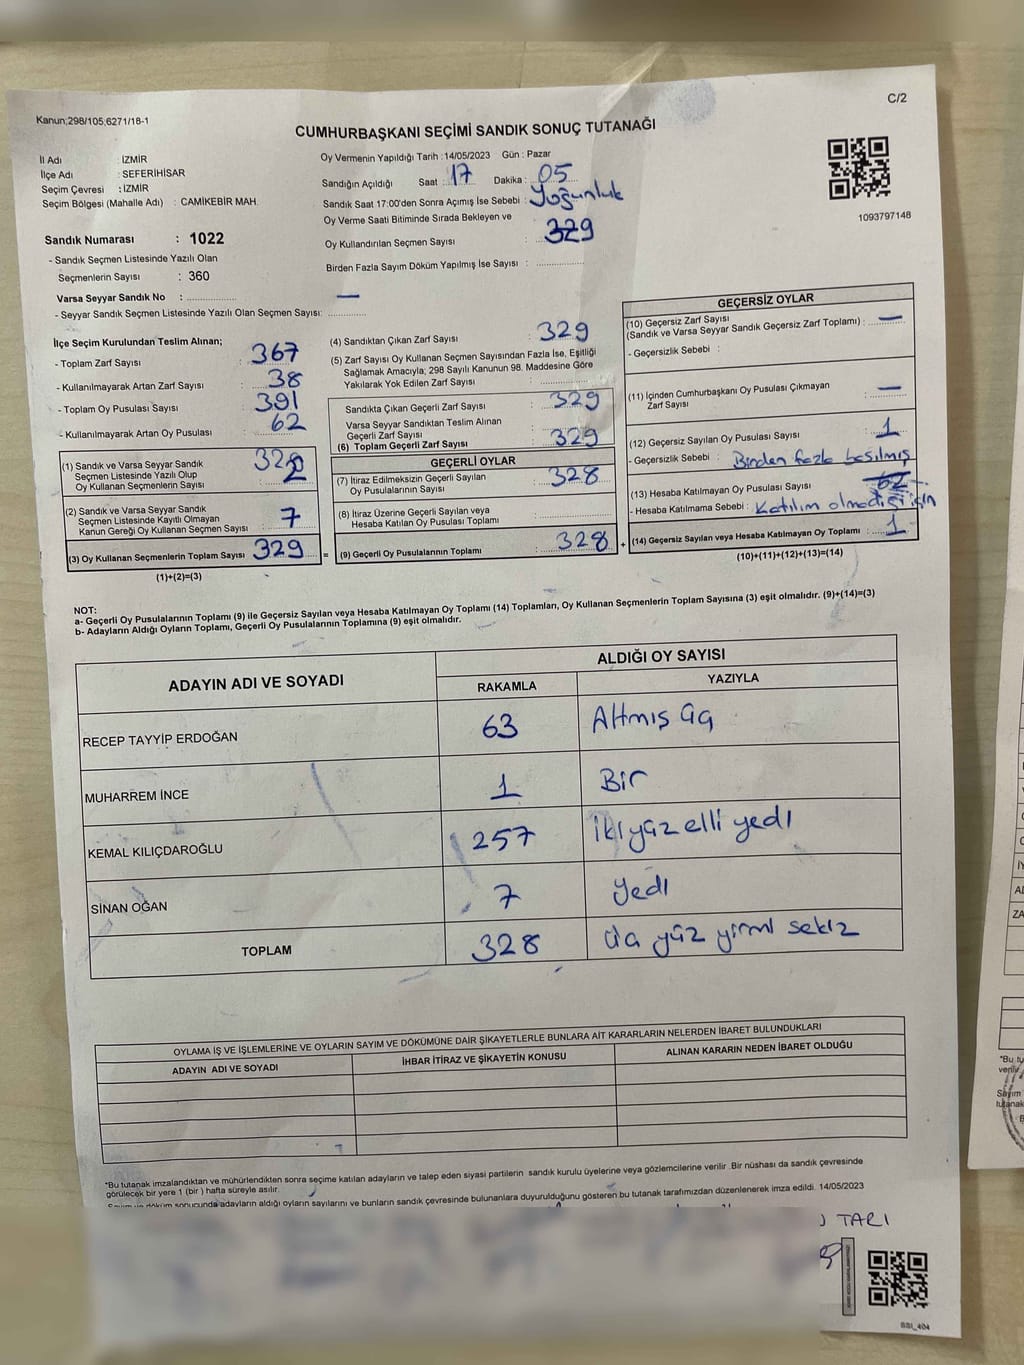 C/2
Kanun;298/105;6271/18-1
CUMHURBAŞKANI SEÇİMİ SANDIK SONUÇ TUTANAĞI
İl Adı : İZMİR
İlçe Adı : SEFERİHİSAR
Seçim Çevresi : İZMİR
Seçim Bölgesi (Mahalle Adı) : CAMİKEBİR MAH.
Oy Vermenin Yapıldığı Tarih :14/05/2023 Gün : Pazar
Sandığın Açıldığı Saat : 17 Dakika : 05
Sandık Saat 17:00'den Sonra Açımış İse Sebebi : Yoğunluk
Oy Verme Saati Bitiminde Sırada Bekleyen ve
Oy Kullandırılan Seçmen Sayısı : 329
Birden Fazla Sayım Döküm Yapılmış İse Sayısı :
1093797148
Sandık Numarası : 1022
- Sandık Seçmen Listesinde Yazılı Olan
Seçmenlerin Sayısı : 360
Varsa Seyyar Sandık No :
- Seyyar Sandık Seçmen Listesinde Yazılı Olan Seçmen Sayısı: —
İlçe Seçim Kurulundan Teslim Alınan;
- Toplam Zarf Sayısı : 367
- Kullanılmayarak Artan Zarf Sayısı : 38
- Toplam Oy Pusulası Sayısı : 391
- Kullanılmayarak Artan Oy Pusulası : 62
(1) Sandık ve Varsa Seyyar Sandık
Seçmen Listesinde Yazılı Olup
Oy Kullanan Seçmenlerin Sayısı : 322
(2) Sandık ve Varsa Seyyar Sandık
Seçmen Listesinde Kayıtlı Olmayan
Kanun Gereği Oy Kullanan Seçmen Sayısı : 7
(3) Oy Kullanan Seçmenlerin Toplam Sayısı : 329 =
(1)+(2)=(3)
(4) Sandıktan Çıkan Zarf Sayısı : 329
(5) Zarf Sayısı Oy Kullanan Seçmen Sayısından Fazla İse, Eşitliği
Sağlamak Amacıyla; 298 Sayılı Kanunun 98. Maddesine Göre
Yakılarak Yok Edilen Zarf Sayısı :
Sandıkta Çıkan Geçerli Zarf Sayısı : 329
Varsa Seyyar Sandıktan Teslim Alınan
Geçerli Zarf Sayısı :
(6) Toplam Geçerli Zarf Sayısı : 329
GEÇERLİ OYLAR
(7) İtiraz Edilmeksizin Geçerli Sayılan
Oy Pusulalarının Sayısı : 328
(8) İtiraz Üzerine Geçerli Sayılan veya
Hesaba Katılan Oy Pusulası Toplamı :
(9) Geçerli Oy Pusulalarının Toplamı : 328 +
GEÇERSİZ OYLAR
(10) Geçersiz Zarf Sayısı
(Sandık ve Varsa Seyyar Sandık Geçersiz Zarf Toplamı) : —
- Geçersizlik Sebebi :
(11) İçinden Cumhurbaşkanı Oy Pusulası Çıkmayan
Zarf Sayısı : —
(12) Geçersiz Sayılan Oy Pusulası Sayısı : 1
- Geçersizlik Sebebi : Birden fazla basılmış
(13) Hesaba Katılmayan Oy Pusulası Sayısı : 62
- Hesaba Katılmama Sebebi : Katılım olmadığı için
(14) Geçersiz Sayılan veya Hesaba Katılmayan Oy Toplamı : 1
(10)+(11)+(12)+(13)=(14)
NOT:
a- Geçerli Oy Pusulalarının Toplamı (9) ile Geçersiz Sayılan veya Hesaba Katılmayan Oy Toplamı (14) Toplamları, Oy Kullanan Seçmenlerin Toplam Sayısına (3) eşit olmalıdır. (9)+(14)=(3)
b- Adayların Aldığı Oyların Toplamı, Geçerli Oy Pusulalarının Toplamına (9) eşit olmalıdır.
ADAYIN ADI VE SOYADI ALDIĞI OY SAYISI
RAKAMLA YAZIYLA
RECEP TAYYİP ERDOĞAN 63 Altmış üç
MUHARREM İNCE 1 Bir
KEMAL KILIÇDAROĞLU 257 iki yüz elli yedi
SİNAN OĞAN 7 Yedi
TOPLAM 328 üç yüz yirmi sekiz
OYLAMA İŞ VE İŞLEMLERİNE VE OYLARIN SAYIM VE DÖKÜMÜNE DAİR ŞİKAYETLERLE BUNLARA AİT KARARLARIN NELERDEN İBARET BULUNDUKLARI
ADAYIN ADI VE SOYADI İHBAR İTİRAZ VE ŞİKAYETİN KONUSU ALINAN KARARIN NEDEN İBARET OLDUĞU
*Bu tutanak imzalandıktan ve mühürlendikten sonra seçime katılan adayların ve talep eden siyasi partilerin sandık kurulu üyelerine veya gözlemcilerine verilir .Bir nüshası da sandık çevresinde
görülecek bir yere 1 (bir ) hafta süreyle asılır.
Sayım ve döküm sonucunda adayların aldığı oyların sayılarını ve bunların sandık çevresinde bulunanlara duyurulduğunu gösteren bu tutanak tarafımızdan düzenlenerek imza edildi. 14/05/2023
TARI
SSI_404